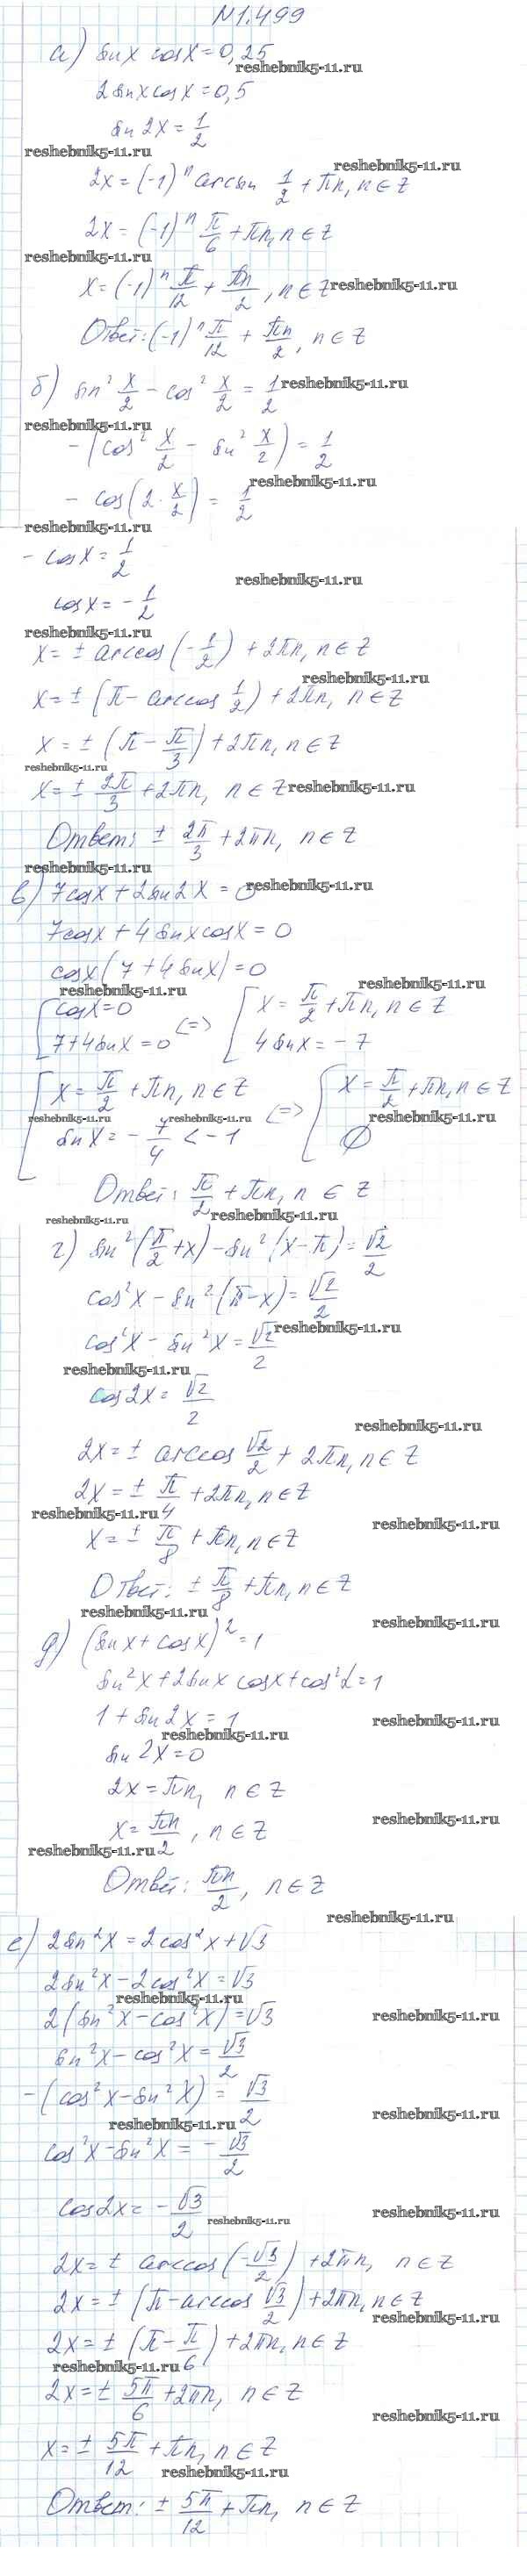 №1.499
а) sin x cos x = 0,25
reshebnik5-11.ru
2 sin x cos x = 0,5
sin 2x = 1/2
reshebnik5-11.ru
reshebnik5-11.ru
2x = (-1)^n arcsin 1/2 + πn, n ∈ Z
2x = (-1)^n π/6 + πn, n ∈ Z
reshebnik5-11.ru
x = (-1)^n π/12 + πn/2, n ∈ Z reshebnik5-11.ru
Ответ: (-1)^n π/12 + πn/2, n ∈ Z
б) sin² x/2 - cos² x/2 = 1/2 reshebnik5-11.ru
reshebnik5-11.ru
-(cos² x/2 - sin² x/2) = 1/2
reshebnik5-11.ru
- cos(2 · x/2) = 1/2
reshebnik5-11.ru
- cos x = 1/2
reshebnik5-11.ru
cos x = - 1/2
reshebnik5-11.ru
x = ± arccos(-1/2) + 2πn, n ∈ Z
reshebnik5-11.ru
x = ± (π - arccos 1/2) + 2πn, n ∈ Z
x = ± (π - π/3) + 2πn, n ∈ Z
reshebnik5-11.ru
x = ± 2π/3 + 2πn, n ∈ Z reshebnik5-11.ru
Ответ: ± 2π/3 + 2πn, n ∈ Z
reshebnik5-11.ru
в) 7cos x + 2 sin 2x = 0 reshebnik5-11.ru
7cos x + 4 sin x cos x = 0
cos x (7 + 4 sin x) = 0
reshebnik5-11.ru
reshebnik5-11.ru
[cos x = 0 <=> [x = π/2 + πn, n ∈ Z
7 + 4 sin x = 0 4 sin x = - 7
[x = π/2 + πn, n ∈ Z <=> [x = π/2 + πn, n ∈ Z
reshebnik5-11.ru reshebnik5-11.ru reshebnik5-11.ru
sin x = - 7/4 < -1 ∅
Ответ: π/2 + πn, n ∈ Z
reshebnik5-11.ru reshebnik5-11.ru
г) sin²(π/2 + x) - sin²(x - π) = √2/2
cos² x - sin²(π - x) = √2/2
reshebnik5-11.ru
cos² x - sin² x = √2/2
reshebnik5-11.ru
cos 2x = √2/2
reshebnik5-11.ru
2x = ± arccos √2/2 + 2πn, n ∈ Z
2x = ± π/4 + 2πn, n ∈ Z
reshebnik5-11.ru
reshebnik5-11.ru
x = ± π/8 + πn, n ∈ Z
Ответ: ± π/8 + πn, n ∈ Z
reshebnik5-11.ru
reshebnik5-11.ru
д) (sin x + cos x)² = 1
sin² x + 2 sin x cos x + cos² x = 1
1 + sin 2x = 1
reshebnik5-11.ru
reshebnik5-11.ru
sin 2x = 0
2x = πn, n ∈ Z
x = πn/2, n ∈ Z
reshebnik5-11.ru
reshebnik5-11.ru
Ответ: πn/2, n ∈ Z
reshebnik5-11.ru
е) 2 sin² x = 2 cos² x + √3
2 sin² x - 2 cos² x = √3
reshebnik5-11.ru
2(sin² x - cos² x) = √3 reshebnik5-11.ru
sin² x - cos² x = √3/2
-(cos² x - sin² x) = √3/2
reshebnik5-11.ru
reshebnik5-11.ru
cos² x - sin² x = - √3/2
cos 2x = - √3/2
reshebnik5-11.ru
reshebnik5-11.ru
2x = ± arccos(-√3/2) + 2πn, n ∈ Z
2x = ± (π - arccos √3/2) + 2πn, n ∈ Z
reshebnik5-11.ru
2x = ± (π - π/6) + 2πn, n ∈ Z
reshebnik5-11.ru
2x = ± 5π/6 + 2πn, n ∈ Z
reshebnik5-11.ru
x = ± 5π/12 + πn, n ∈ Z
reshebnik5-11.ru
Ответ: ± 5π/12 + πn, n ∈ Z